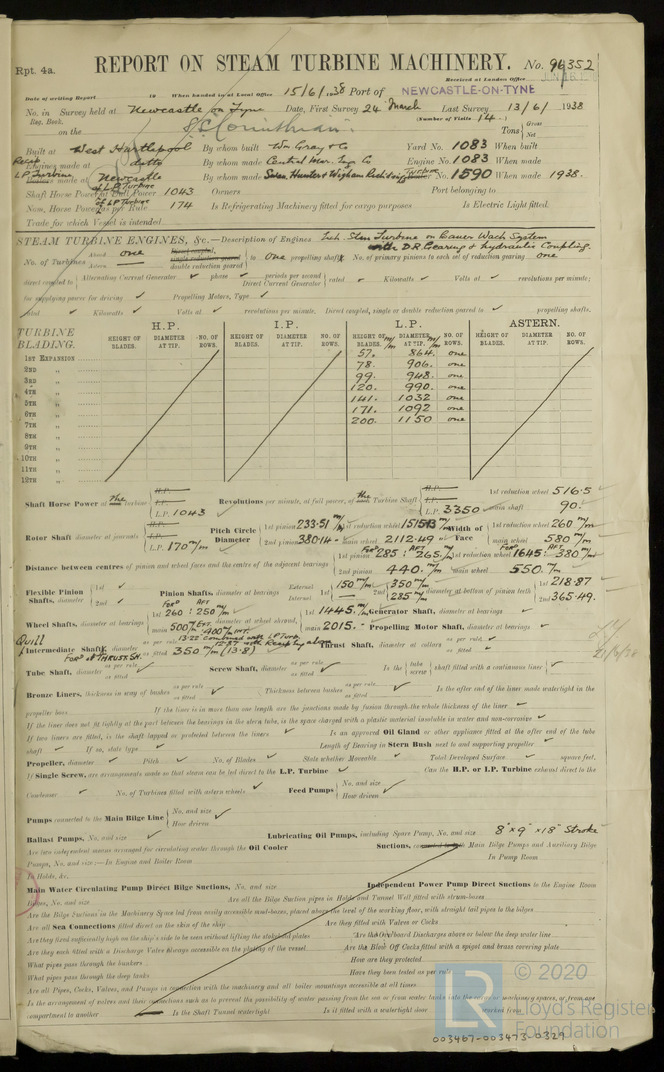 Rpt. 4a.
REPORT ON STEAM TURBINE MACHINERY. No. 96352
Received at London Office JUN 16
Date of writing Report 19 When handed in at Local Office 15/6/1938 Port of NEWCASTLE-ON-TYNE
No. in Reg. Book. Survey held at Newcastle on Tyne Date, First Survey 24 March Last Survey 13/6/1938
(Number of Visits 14)
on the S/S Corinthian Tons Gross Net
Built at West Hartlepool By whom built Wm Gray & Co Yard No. 1083 When built
Recip Engines made at ditto By whom made Central Mar. Eng Co Engine No. 1083 When made
L.P. Turbine made at Newcastle By whom made Swan, Hunter & Wigham Richardson Turbine No. 1590 When made 1938.
Shaft Horse Power at Full Power of L.P. Turbine 1043 Owners Port belonging to
Nom. Horse Power as per Rule of L.P. Turbine 174 Is Refrigerating Machinery fitted for cargo purposes Is Electric Light fitted
Trade for which Vessel is intended
STEAM TURBINE ENGINES, &c.—Description of Engines Exh. Stm Turbine on Bauer Wach System with D.R. Gearing & hydraulic Coupling.
No. of Turbines Ahead one Astern — Direct coupled, single reduction geared double reduction geared to one propelling shaft. No. of primary pinions to each set of reduction gearing one
direct coupled to Alternating Current Generator ✓ phase ✓ periods per second Direct Current Generator rated ✓ Kilowatts ✓ Volts at ✓ revolutions per minute;
for supplying power for driving ✓ Propelling Motors, Type ✓
rated ✓ Kilowatts ✓ Volts at ✓ revolutions per minute. Direct coupled, single or double reduction geared to ✓ propelling shafts.
TURBINE BLADING. H.P. I.P. L.P. ASTERN.
HEIGHT OF BLADES. DIAMETER AT TIP. NO. OF ROWS. HEIGHT OF BLADES. DIAMETER AT TIP. NO. OF ROWS. HEIGHT OF BLADES. m/m DIAMETER AT TIP. m/m NO. OF ROWS. HEIGHT OF BLADES. DIAMETER AT TIP. NO. OF ROWS.
1ST EXPANSION 57. 864. one
2ND " 78. 906. one
3RD " 99. 948. one
4TH " 120. 990. one
5TH " 141. 1032 one
6TH " 171. 1092 one
7TH " 200. 1150 one
8TH "
9TH "
10TH "
11TH "
12TH "
Shaft Horse Power at the turbine H.P. I.P. L.P. 1043 Revolutions per minute, at full power, of the Turbine Shaft H.P. I.P. L.P. 3350 1st reduction wheel 516.5 main shaft 90.
Rotor Shaft diameter at journals H.P. I.P. L.P. 170 m/m Pitch Circle Diameter 1st pinion 233.51 m/m 2nd pinion 380.14 1st reduction wheel 1515.13 m/m main wheel 2112.49 Width of Face 1st reduction wheel 260 m/m main wheel 580 m/m
Distance between centres of pinion and wheel faces and the centre of the adjacent bearings 1st pinion FOR'D 285: AFT 265. m/m 2nd pinion 440. m/m 1st reduction wheel FOR'D 1645: AFT 380 m/m main wheel 550. m/m
Flexible Pinion Shafts, diameter 1st ✓ 2nd ✓ Pinion Shafts, diameter at bearings External 1st 150 m/m 2nd 350 m/m Internal 1st — 2nd 285 m/m diameter at bottom of pinion teeth 1st 218.87 2nd 365.49.
Wheel Shafts, diameter at bearings 1st FOR'D 260: AFT 250 m/m main 500 m/m EXT. 400 m/m INT. diameter at wheel shroud, 1st 1445. m/m main 2015. Generator Shaft, diameter at bearings ✓ Propelling Motor Shaft, diameter at bearings ✓
Quill Intermediate Shaft, diameter FOR'D of THRUST SH. as per rule 13.22 combined with L.P. Turb. 12.87 with Recip Eng alone as fitted 350 m/m (13.8) Thrust Shaft, diameter at collars as per rule as fitted ✓
Tube Shaft, diameter as per rule as fitted ✓ Screw Shaft, diameter as per rule as fitted ✓ Is the tube screw shaft fitted with a continuous liner ✓
Bronze Liners, thickness in way of bushes as per rule as fitted ✓ Thickness between bushes as per rule as fitted ✓ Is the after end of the liner made watertight in the
propeller boss If the liner is in more than one length are the junctions made by fusion through the whole thickness of the liner ✓
If the liner does not fit tightly at the part between the bearings in the stern tube, is the space charged with a plastic material insoluble in water and non-corrosive ✓
If two liners are fitted, is the shaft lapped or protected between the liners ✓ Is an approved Oil Gland or other appliance fitted at the after end of the tube
shaft ✓ If so, state type ✓ Length of Bearing in Stern Bush next to and supporting propeller ✓
Propeller, diameter ✓ Pitch ✓ No. of Blades ✓ State whether Moveable ✓ Total Developed Surface ✓ square feet.
If Single Screw, are arrangements made so that steam can be led direct to the L.P. Turbine ✓ Can the H.P. or I.P. Turbine exhaust direct to the
Condenser ✓ No. of Turbines fitted with astern wheels ✓ Feed Pumps No. and size How driven ✓
Pumps connected to the Main Bilge Line No. and size How driven ✓
Ballast Pumps, No. and size ✓ Lubricating Oil Pumps, including Spare Pump, No. and size 8" x 9" x 18" Stroke
Are two independent means arranged for circulating water through the Oil Cooler Suctions, connected to both Main Bilge Pumps and Auxiliary Bilge
Pumps, No. and size:—In Engine and Boiler Room In Pump Room
In Holds, &c.
Main Water Circulating Pump Direct Bilge Suctions, No. and size Independent Power Pump Direct Suctions to the Engine Room
Bilges, No. and size Are all the Bilge Suction pipes in Holds and Tunnel Well fitted with strum-boxes
Are the Bilge Suctions in the Machinery Space led from easily accessible mud-boxes, placed above the level of the working floor, with straight tail pipes to the bilges
Are all Sea Connections fitted direct on the skin of the ship Are they fitted with Valves or Cocks
Are they fixed sufficiently high on the ship's side to be seen without lifting the stokehold plates Are the Overboard Discharges above or below the deep water line
Are they each fitted with a Discharge Valve always accessible on the plating of the vessel Are the Blow Off Cocks fitted with a spigot and brass covering plate
What pipes pass through the bunkers How are they protected
What pipes pass through the deep tanks Have they been tested as per rule
Are all Pipes, Cocks, Valves, and Pumps in connection with the machinery and all boiler mountings accessible at all times
Is the arrangement of valves and their connections such as to prevent the possibility of water passing from the sea or from water tanks into the cargo or machinery spaces, or from one
compartment to another Is the Shaft Tunnel watertight Is it fitted with a watertight door worked from
© 2020
Lloyd's Register
Foundation
LR
003467-003473-0329